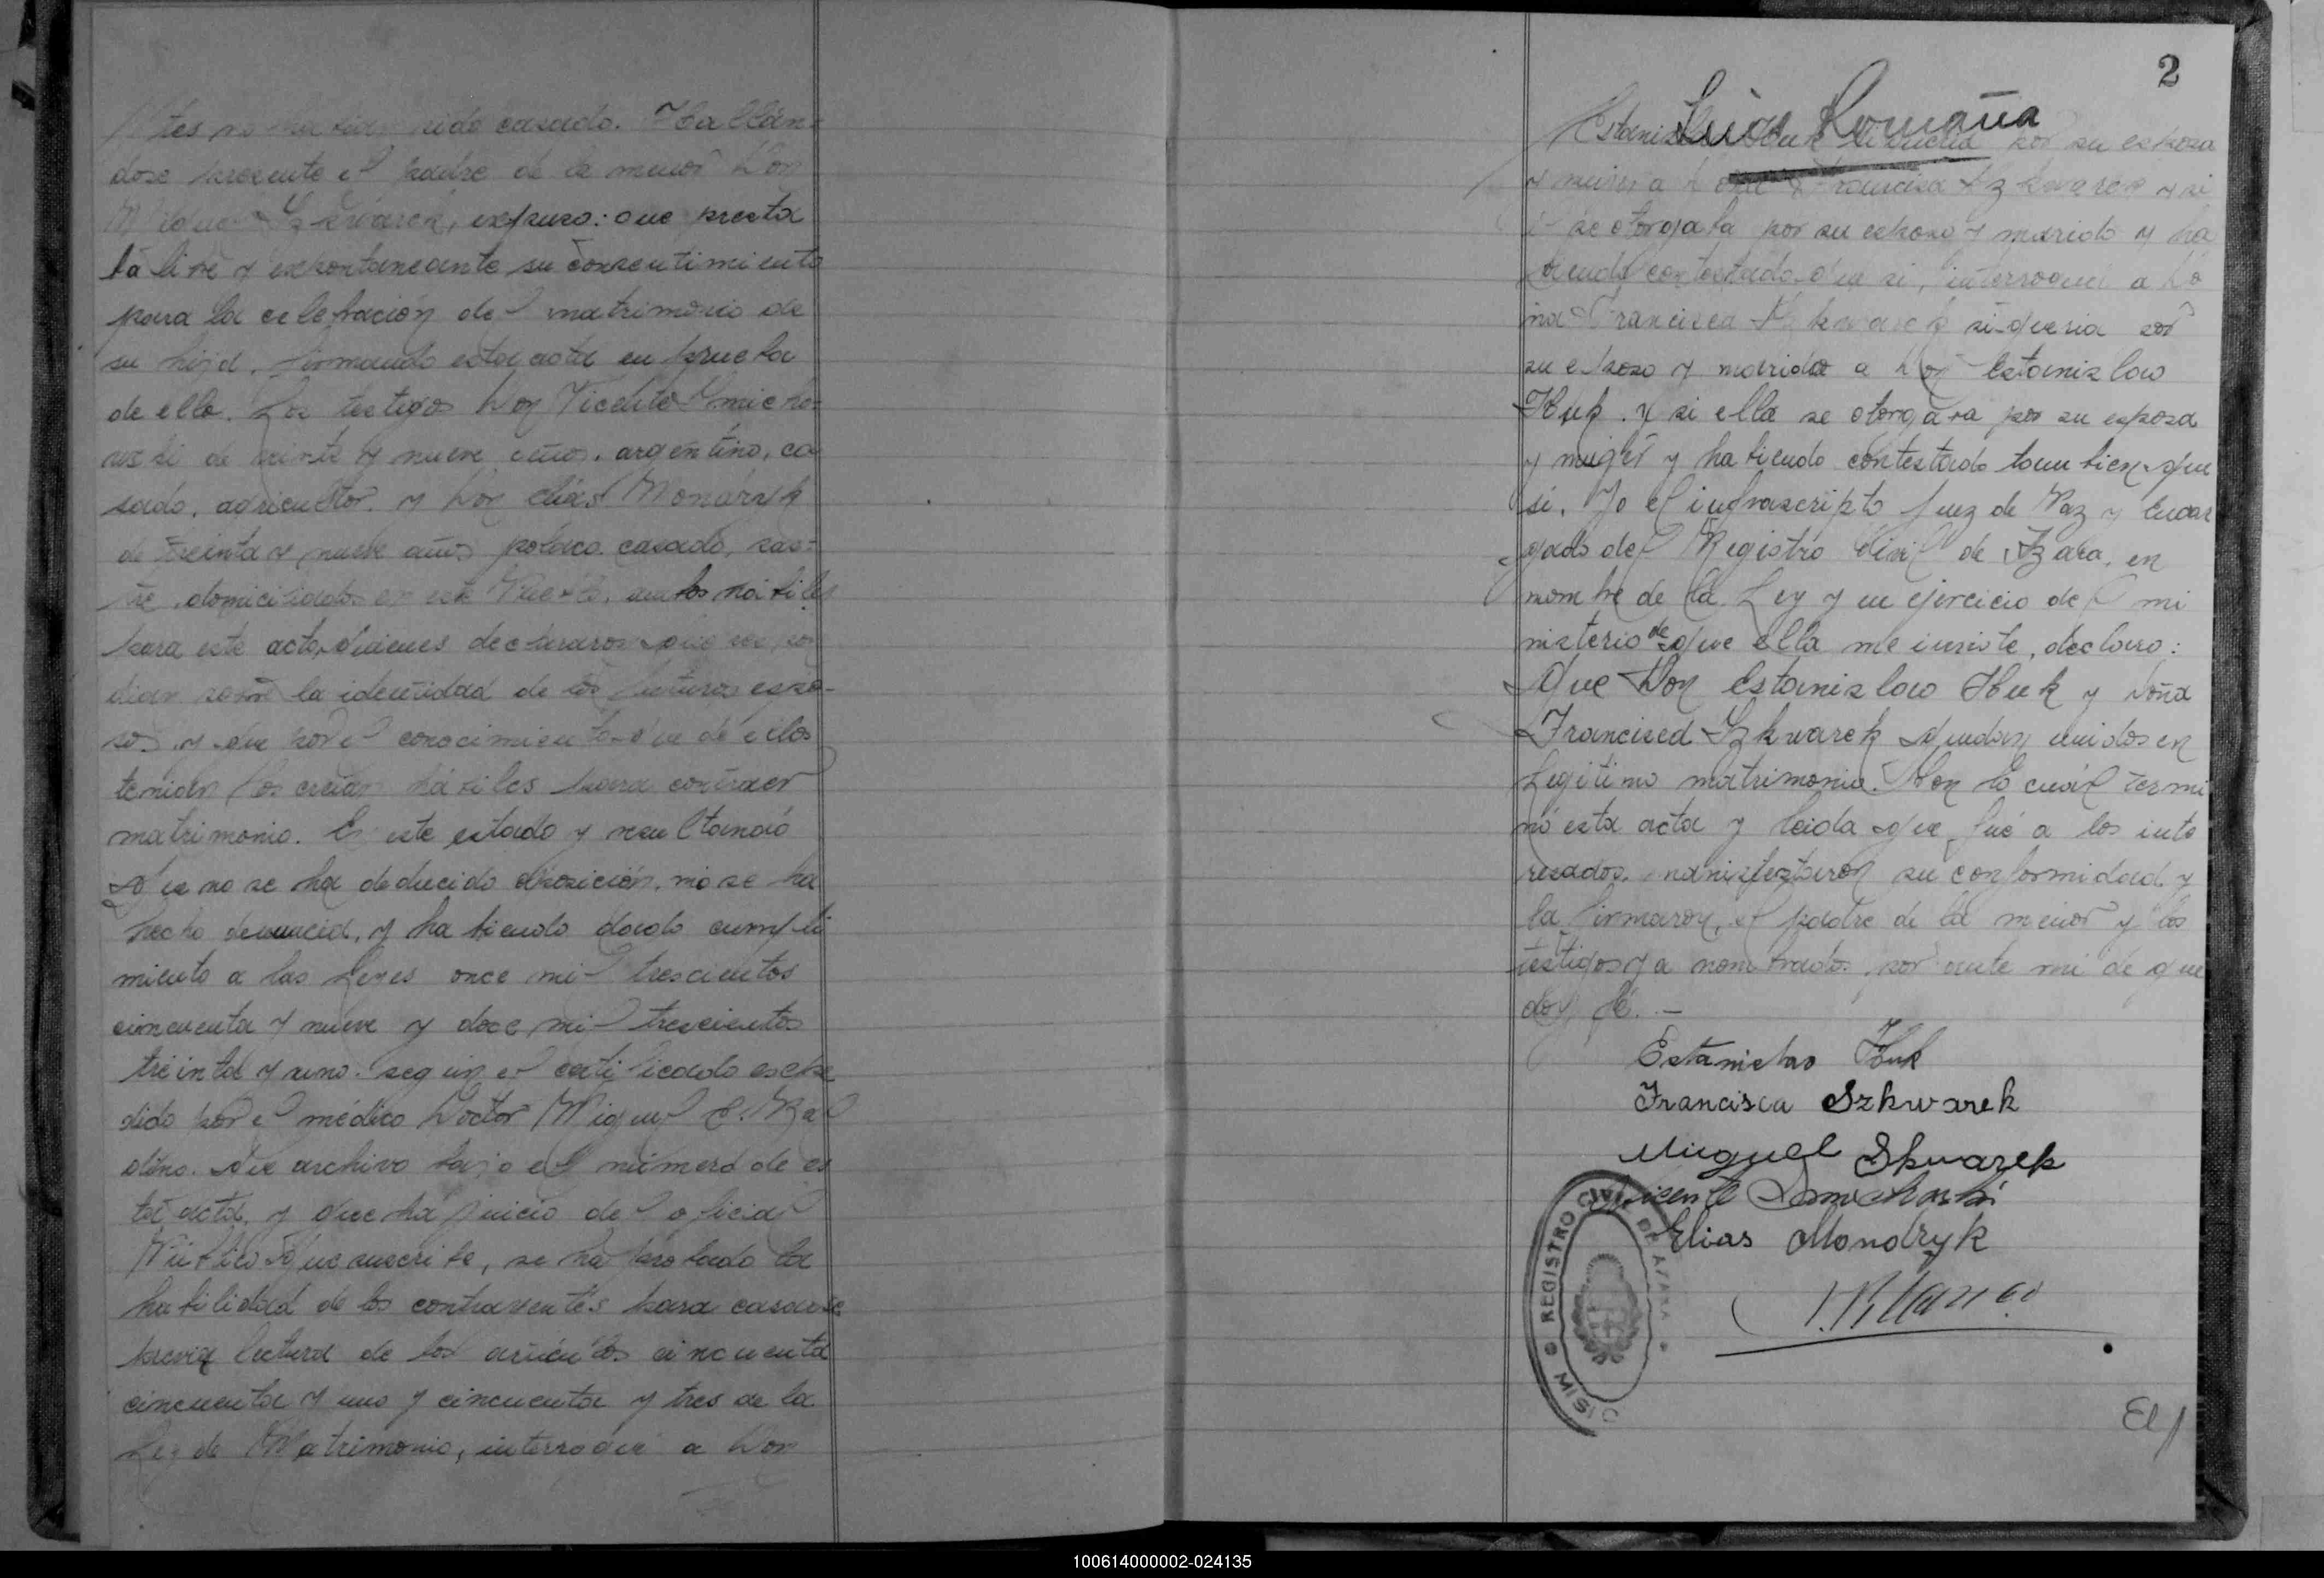 tes no habian sido casado. Hallán-
dose presente el padre de la menor Don
Miguel Szkwarek, expuso: que presta
ba libre y expontaneante su consentimiento
para la celebración del matrimonio de
su hija, firmando esta acta en prueba
de ello. Los testigos Don Vicente
de y nueve años, argentino, ca
sado, agricultor, y Don Elias Mondryk
de treinta y nueve años polaco casado, sas-
tre domiciliados en este Pueblo, ambos hábiles
para este acto, quienes declararon que res pon
dian sobre la identidad de los futuros espo-
sos y que por el conocimiento que de ellos
tenian los creian hábiles para contraer
matrimonio. En este estado y resultando
que no se ha deducido oposición, ni se ha
hecho denuncia, y habiendo dado cumpli
miento a las Leyes once mil trescientos
cincuenta y nueve y doce mil trescientos
treinta y uno. según el certificado expe
dido por el médico Doctor Miguel C.
que archivo bajo el número de es
ta acta, y que há juicio del oficial
Público que suscribe, se ha probado la
habilidad de los contrayentes para casarse
previa lectura de los artículos cincuenta
cincuenta y uno y cincuenta y tres de la
Ley de Matrimonio, interrogué a Don
2
Romaña
Estanislao Huk por su esposa
y muger a Doña Francisca Szkwarek y si
él se otorgaba por su esposo y marido y ha
biendo contestado que si, interrogué a Do
ña Francisca Szkwarek si queria por
su esposo y marido a Don Estanislao
Huk, y si ella se otorgaba por su esposa
y muger y habiendo contestado tambien que
si. Yo el infrascripto Juez de Paz y Encar
gado del Registro Civil de Azara, en
nombre de la Ley y en ejercicio del mi
nisterio de que ella me inviste, declaro:
Que Don Estanislao Huk y Doña
Francisca Szkwarek quedan unidos en
Legitimo matrimonio. Con lo cuál termi
nó esta acta y leida que fué a los inte
resados, manifestaron su conformidad y
la firmaron, el padre de la menor y los
testigos ya nombrados, por ante mi de que
doy fé. –
Estanislao Huk
Francisca Szkwarek
Miguel Skwarek
Vicente
Elias Mondryk
REGISTRO CIVIL DE AZARA
El
100614000002-024135